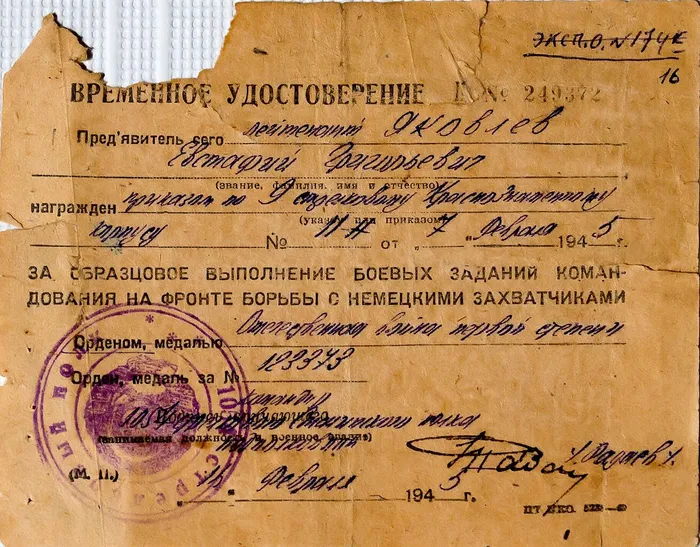 ЭКСП.О. №174к
16
ВРЕМЕННОЕ УДОСТОВЕРЕНИЕ № 249372
Пред'явитель сего лейтенант Яковлев
Евстафий Григорьевич
(звание, фамилия, имя и отчество)
награжден приказом по 9 стрелковому Краснознаменному
(указом или приказом)
корпусу № 11-н от „7“ Февраля 1945 г.
ЗА ОБРАЗЦОВОЕ ВЫПОЛНЕНИЕ БОЕВЫХ ЗАДАНИЙ КОМАН-
ДОВАНИЯ НА ФРОНТЕ БОРЬБЫ С НЕМЕЦКИМИ ЗАХВАТЧИКАМИ
Орденом, медалью Отечественная война первой степени
Орден, медаль за № 123373
Командир
полка
(занимаемая должность и военное звание)
(М. П.) Февраля 1945 г. /Фадаев/.